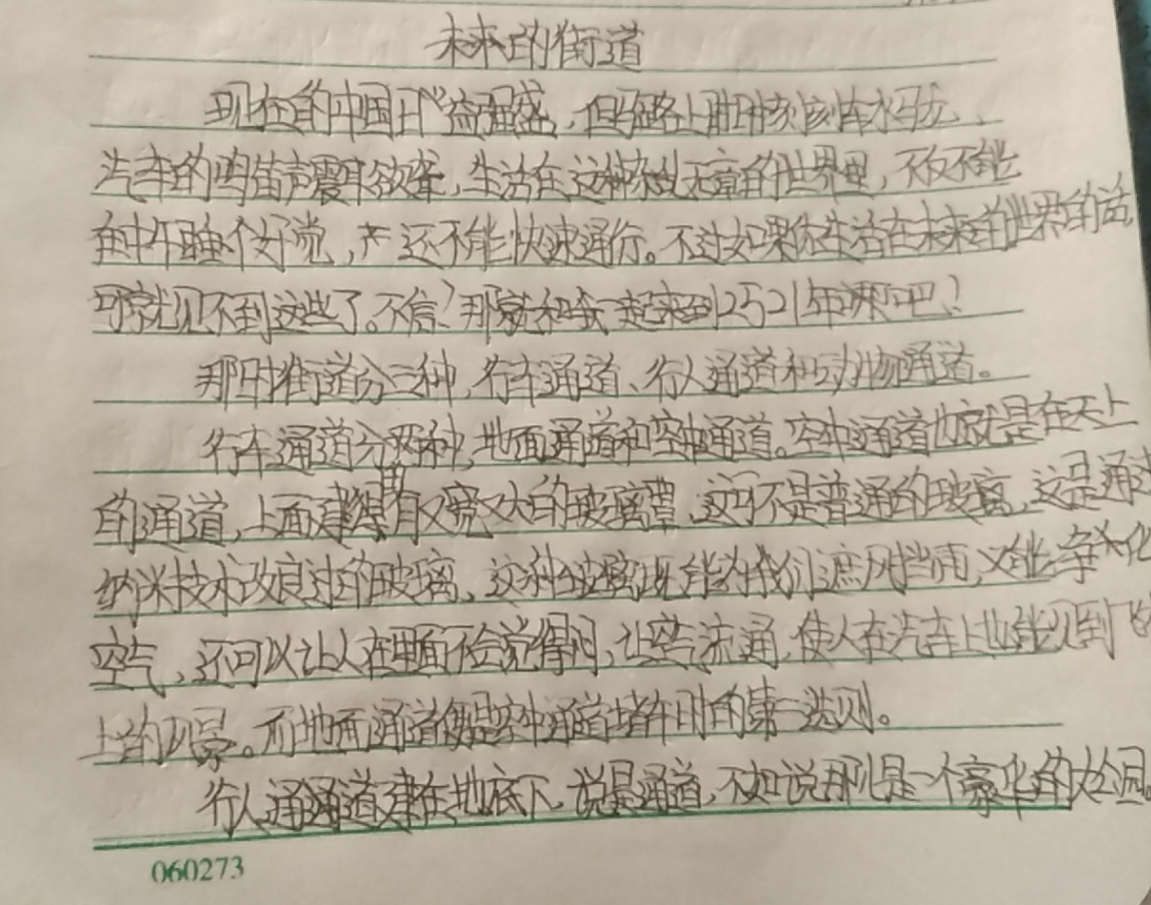 未来的街道
现在的中国日益强盛，但马路上时时刻刻车水马龙，
汽车的鸣笛声震耳欲聋，生活在这种杂乱无章的世界里，不仅不能
在中午睡个好觉，还不能快速通行。不过如果你生活在未来的世界的话，
可就见不到这些了。不信？那就和我一起来到2521年瞧瞧吧！
那时街道分三种，行车通道、行人通道和动物通道。
行车通道分两种，地面通道和空中通道。空中通道也就是在天上
的通道，上面建得有又宽又大的玻璃罩，这可不是普通的玻璃，这是通过
纳米技术改良过的玻璃，这种玻璃既能为我们遮风挡雨，又能净化
空气，还可以让人在里面不会觉得闷，让空气流通，使人在汽车上也能见到
上的风景。而地面通道便是空中通道堵车时的第一选则。
行人通通道建在地底下，说是通道，不如说那儿是一个豪华的大公园。
060273